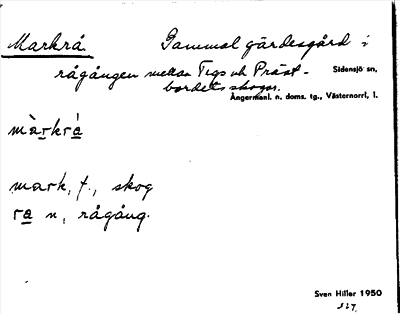 Markrå Gammal gärdesgård i
rågången mellan Tegs och Präst-
bordets skogar.
Sidensjö sn,
Ångermanl. n. doms. tg., Västernorrl, l.
màrkrá
mark, f., skog
ra n, rågång.
Sven Hiller 1950